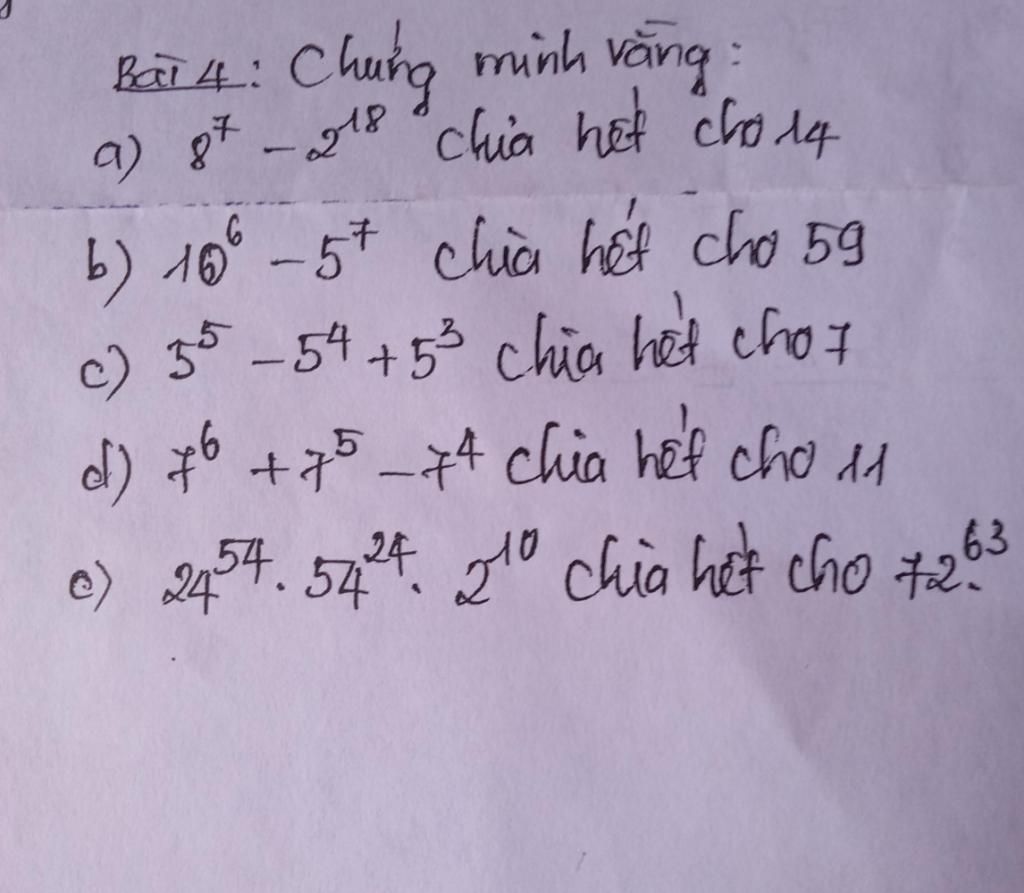 Bài 4: Chứng minh rằng:
a) 8⁷ - 2¹⁸ chia hết cho 14
b) 10⁶ - 5⁷ chia hết cho 59
c) 5⁵ - 5⁴ + 5³ chia hết cho 7
d) 7⁶ + 7⁵ - 7⁴ chia hết cho 11
e) 24⁵⁴. 54²⁴. 2¹⁰ chia hết cho 72⁶³.